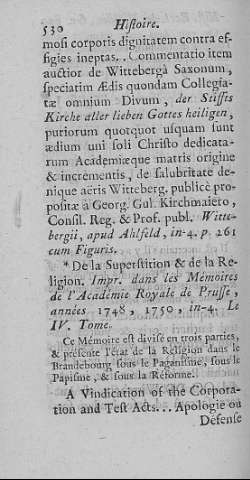 530 Histoire.
mosi corporis dignitatem contra ef-
figies ineptas. . Commentatio item
auctior de Wittebergâ Saxonum,
speciatim Ædis quondam Collegia-
tæ omnium Divum, der Stiffts
Kirche aller lieben Gottes heiligen,
puriorum quotquot usquam sunt
ædium uni soli Christo dedicata-
rum Academiæque matris origine
& incrementis, de salubritate de-
nique aëris Witteberg. publicè pro-
positæ à Georg. Gul. Kirchmaiero,
Consil. Reg. & Prof. publ. Witte-
bergii, apud Ahlfeld, in-4. p. 261
cum Figuris.
* De la Superstition & de la Re-
ligion. Impr. dans les Mémoires
de l'Académie Royale de Prusse,
années 1748, 1750, in-4. Le
IV. Tome.
Ce Mémoire est divisé en trois parties,
& présente l'état de la Religion dans le
Brandebourg sous le Paganisme, sous le
Papisme, & sous la Réforme.
A Vindication of the Corpora-
tion and Test Acts. . . Apologie ou
Défense